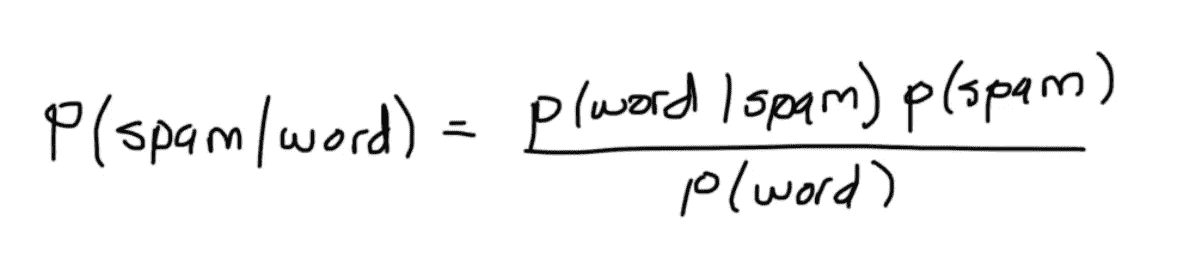 P(spam/word) = p(word|spam) p(spam)
p(word)